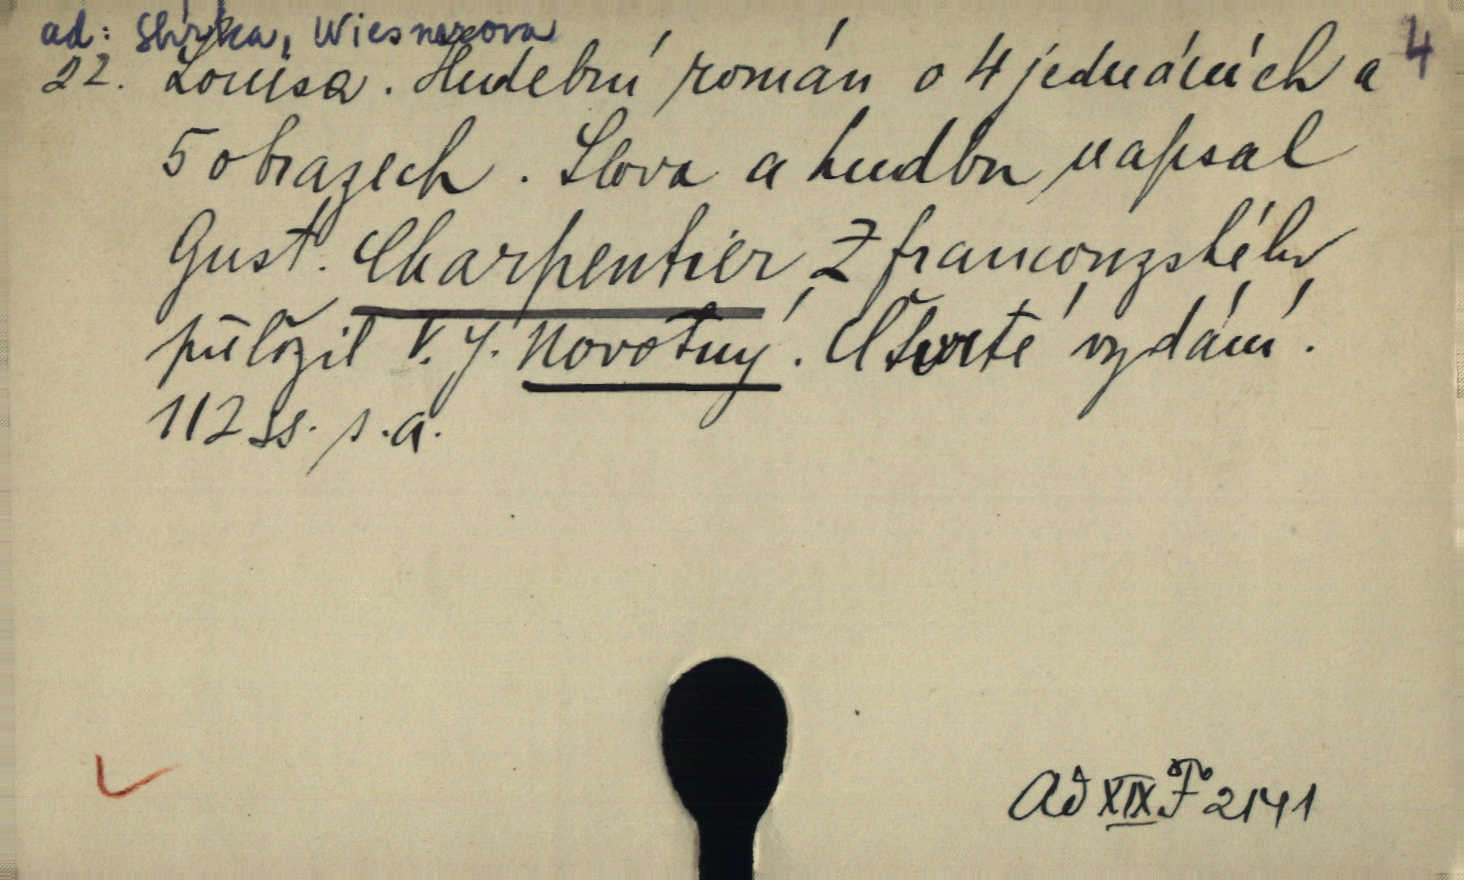 ad: Sbírka, Wiesnerova 4
22. Louisa. Hudební román o 4 jednáních a
5 obrazech. Slova a hudbu napsal
Gust. Charpentier. Z francouzského
přeložil V. J. Novotný. Čtvrté vydání.
112 ss. s.a.
Ad XIX F 2141